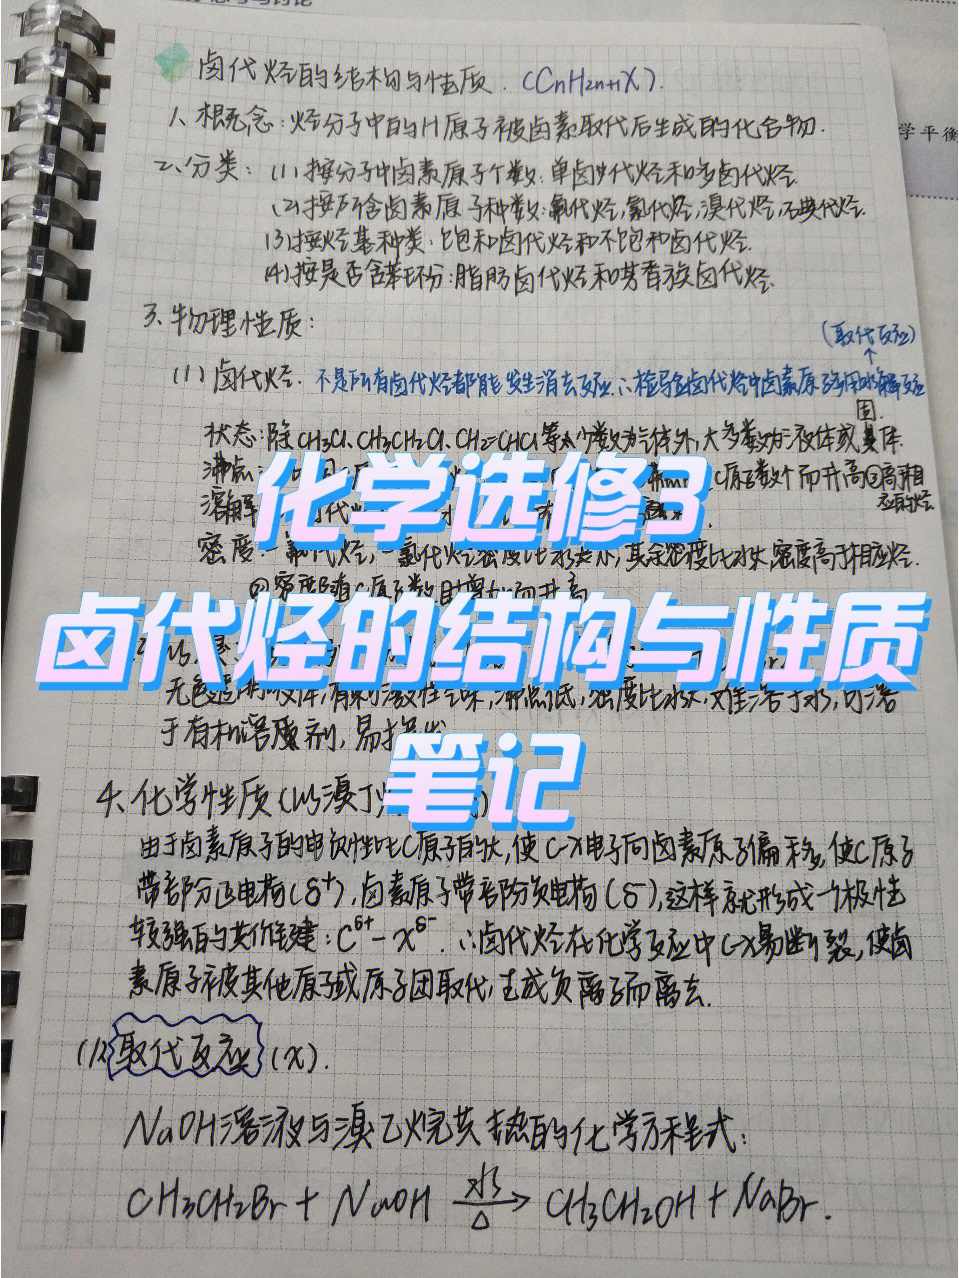 卤代烃的结构与性质. (CnH2n+1X).
1、概念:烃分子中的H原子被卤素取代后生成的化合物.
学平衡
2、分类: (1)按分子中卤素原子个数:单卤代烃和多卤代烃.
(2)按所含卤素原子种类:氟代烃,氯代烃,溴代烃,碘代烃.
(3)按烃基种类:饱和卤代烃和不饱和卤代烃.
(4)按是否含苯环分:脂肪卤代烃和芳香族卤代烃.
3、物理性质:
(取代反应)
(1)卤代烃. 不是所有卤代烃都能发生消去反应.∴检验卤代烃中卤素原子多用水解反应
固.
状态:除CH3Cl、CH3CH2Cl、CH2=CHCl等少数为气体外,大多数为液体或 体.
沸点 C原子数个而升高②高相
应的烃.
溶解
化学选修3
密度:一氟代烃,一氯代烃密度比水小,其余密度比水大,密度高于相应烃.
②密度随C原子数目增加而升高
卤代烃的结构与性质
无色透明液体,有刺激性气味,沸点低,密度比水大,难溶于水,可溶
于有机溶剂,易挥发
笔记
4、化学性质(以溴丁 )
由于卤素原子的电负性比C原子的大,使C-X电子向卤素原子偏移,使C原子
带部分正电荷(δ+),卤素原子带部分负电荷(δ-),这样就形成一个极性
较强的共价键:Cδ+-Xδ-.∴卤代烃在化学反应中C-X易断裂,使卤
素原子被其他原子或原子团取代,生成负离子而离去.
(1)取代反应(X).
NaOH溶液与溴乙烷共热的化学方程式:
CH3CH2Br + NaOH 水 △ → CH3CH2OH + NaBr.